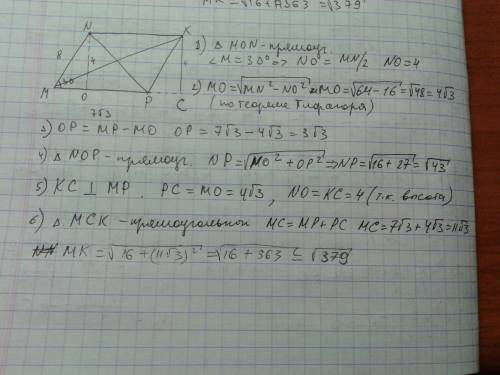 MK = √16 + A363 = √379
N
K
8
4
30
M
O
P
C
7√3
1) Δ MON - прямоуг.
∠M = 30° => NO = MN/2 NO = 4
2) MO = √MN² - NO² MO = √64 - 16 = √48 = 4√3
(по теореме Пифагора)
3) OP = MP - MO OP = 7√3 - 4√3 = 3√3
4) Δ NOP - прямоуг. NP = √NO² + OP² => NP = √16 + 27 = √43
5) KC ⊥ MP. PC = MO = 4√3, NO = KC = 4 (т.к. высота)
6) Δ. MCK - прямоугольной MC = MP + PC MC = 7√3 + 4√3 = 11√3
MK = √16 + (11√3)² = √16 + 363 = √379